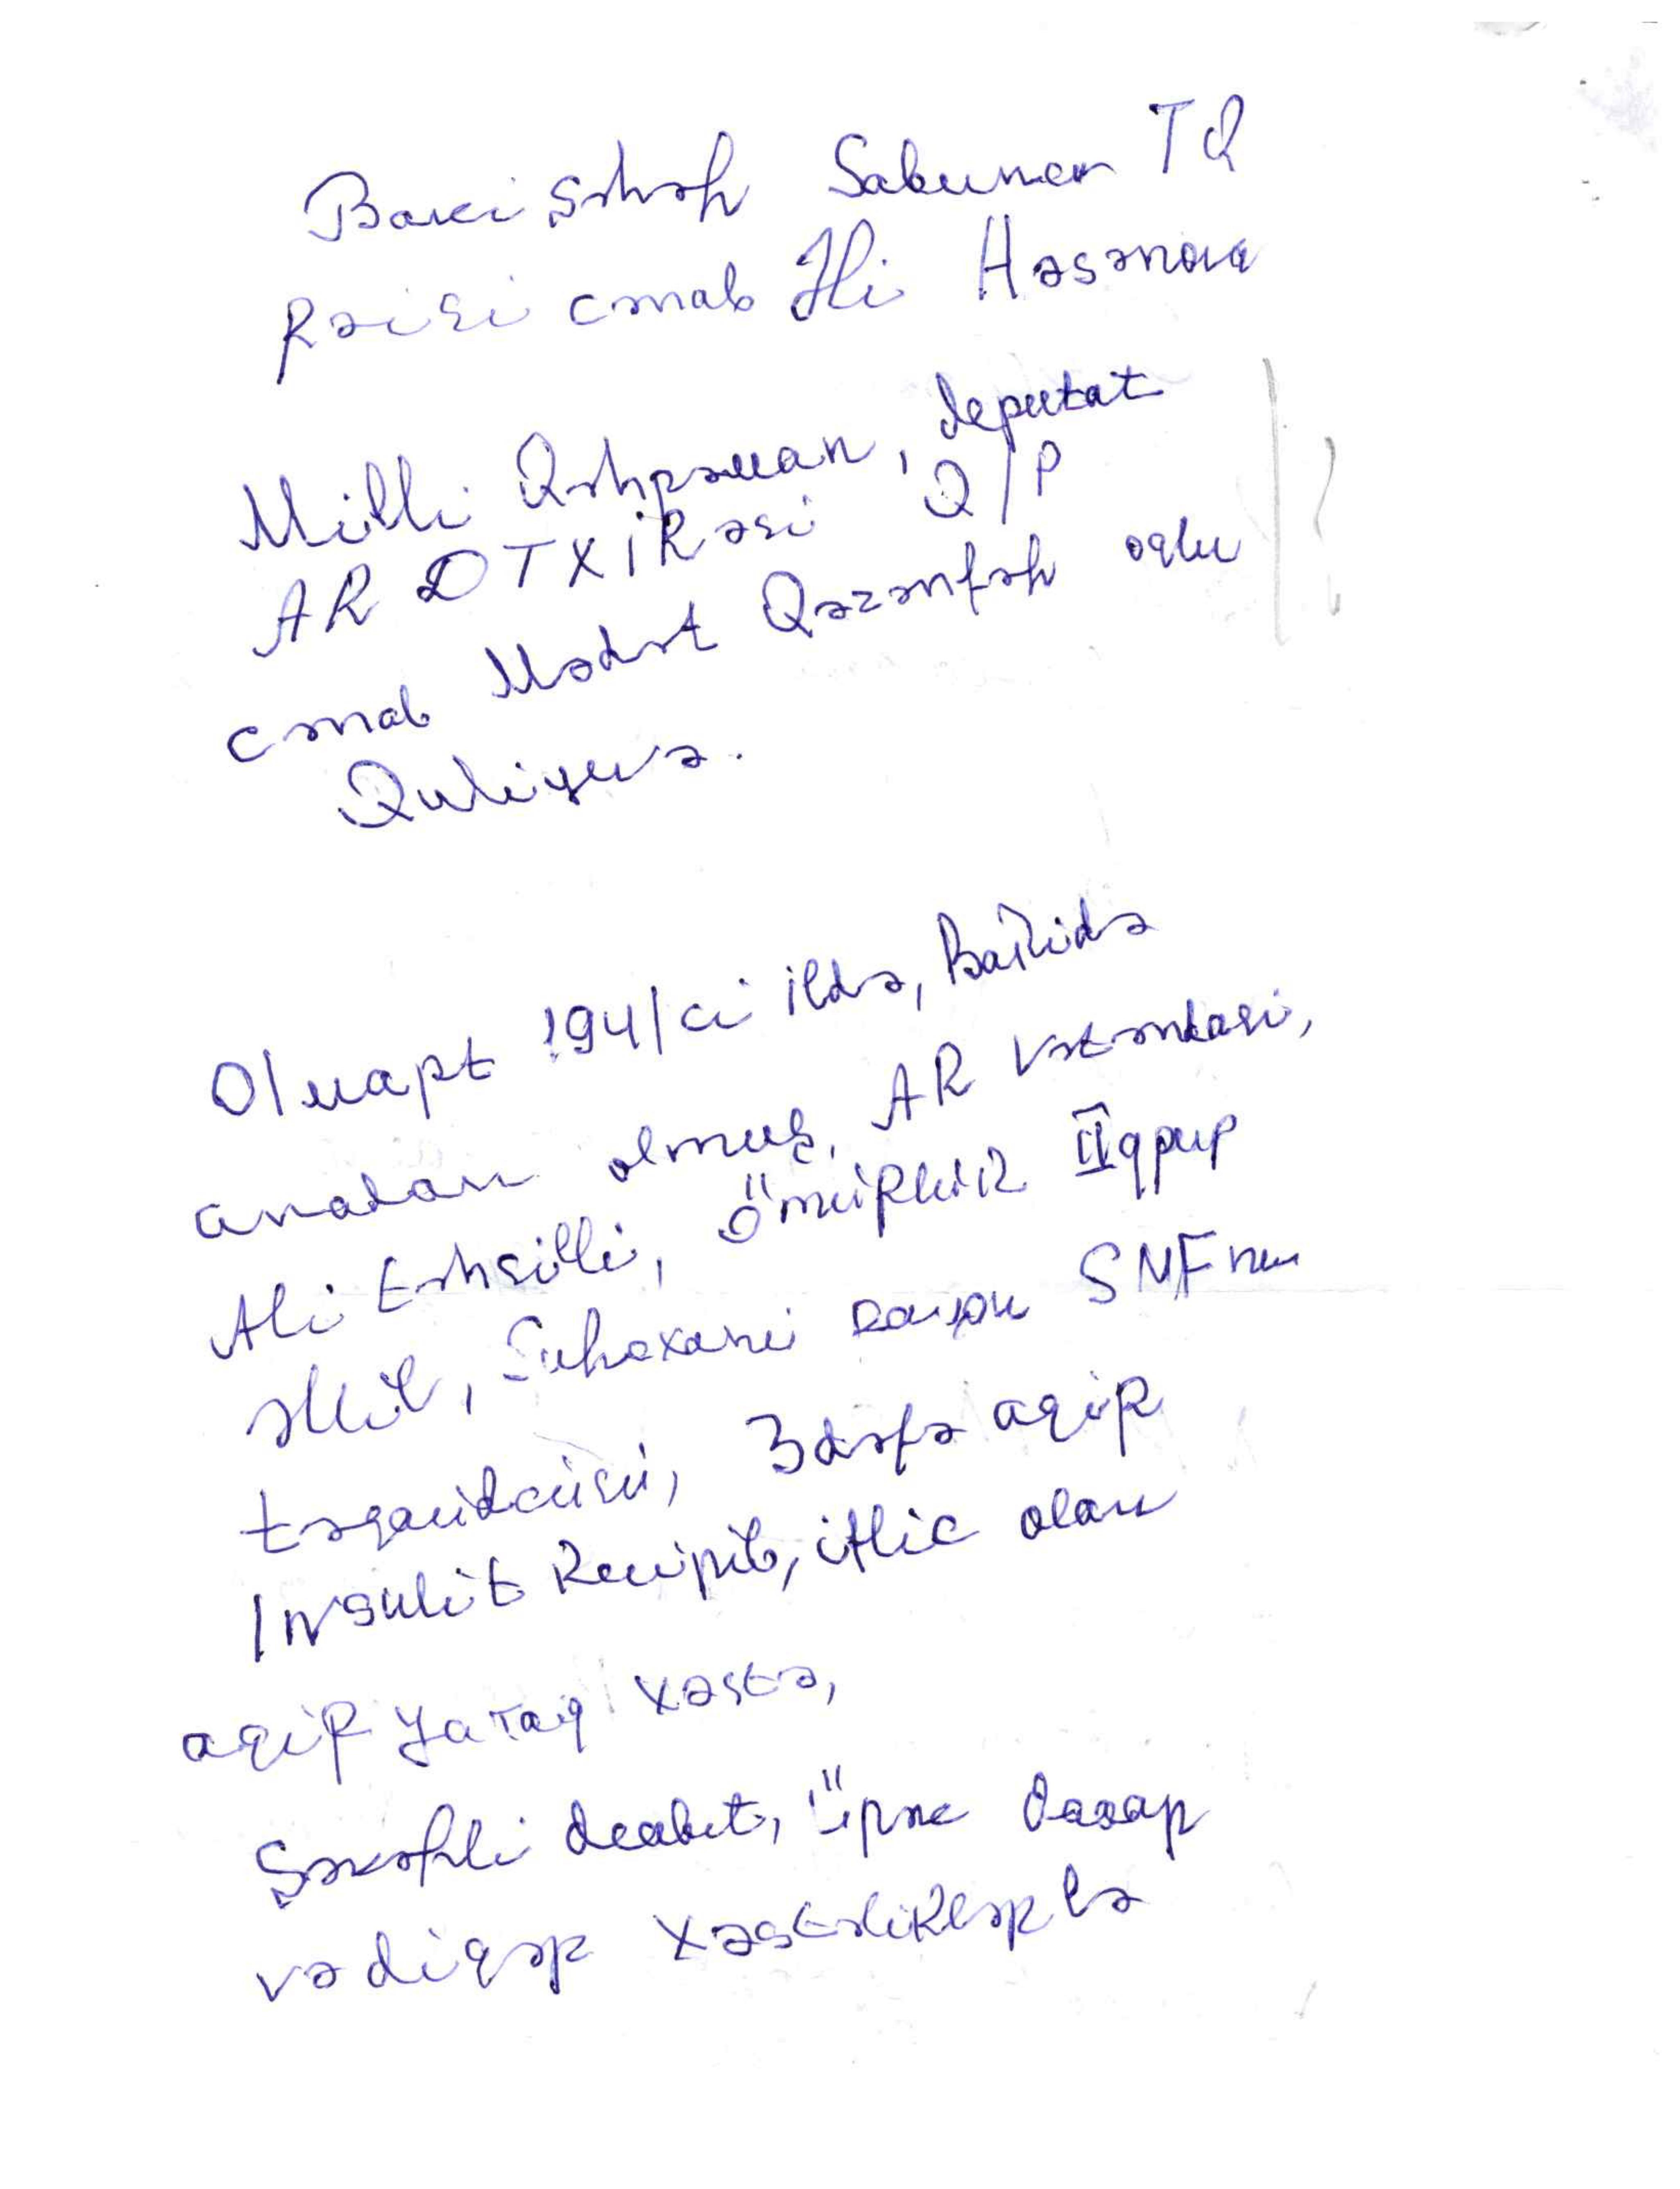 Baki şəhəр Sabunçu TQ
Rəisi cənab Əli Həsənova
Milli Qəhрəman, deputat
AR DTXİRəsi Q/P
cənab Mədət Qəzənfəр oqlu
Quliyevə.
01 maрt 1941ci ildə, Bakida
anadan olmuş, AR Vətəndaşi,
Ali təhsilli, ömüрlük II qрup
əlil, Suрaxani Rayon SMFnin
təqaüdcüsü, 3 dəfə aqiR
Insulit Keçiрib, iflic olan
aqiR yataq xəstə,
Şəkəрli deabet, üрək
və digəр xəstəlikləрlə